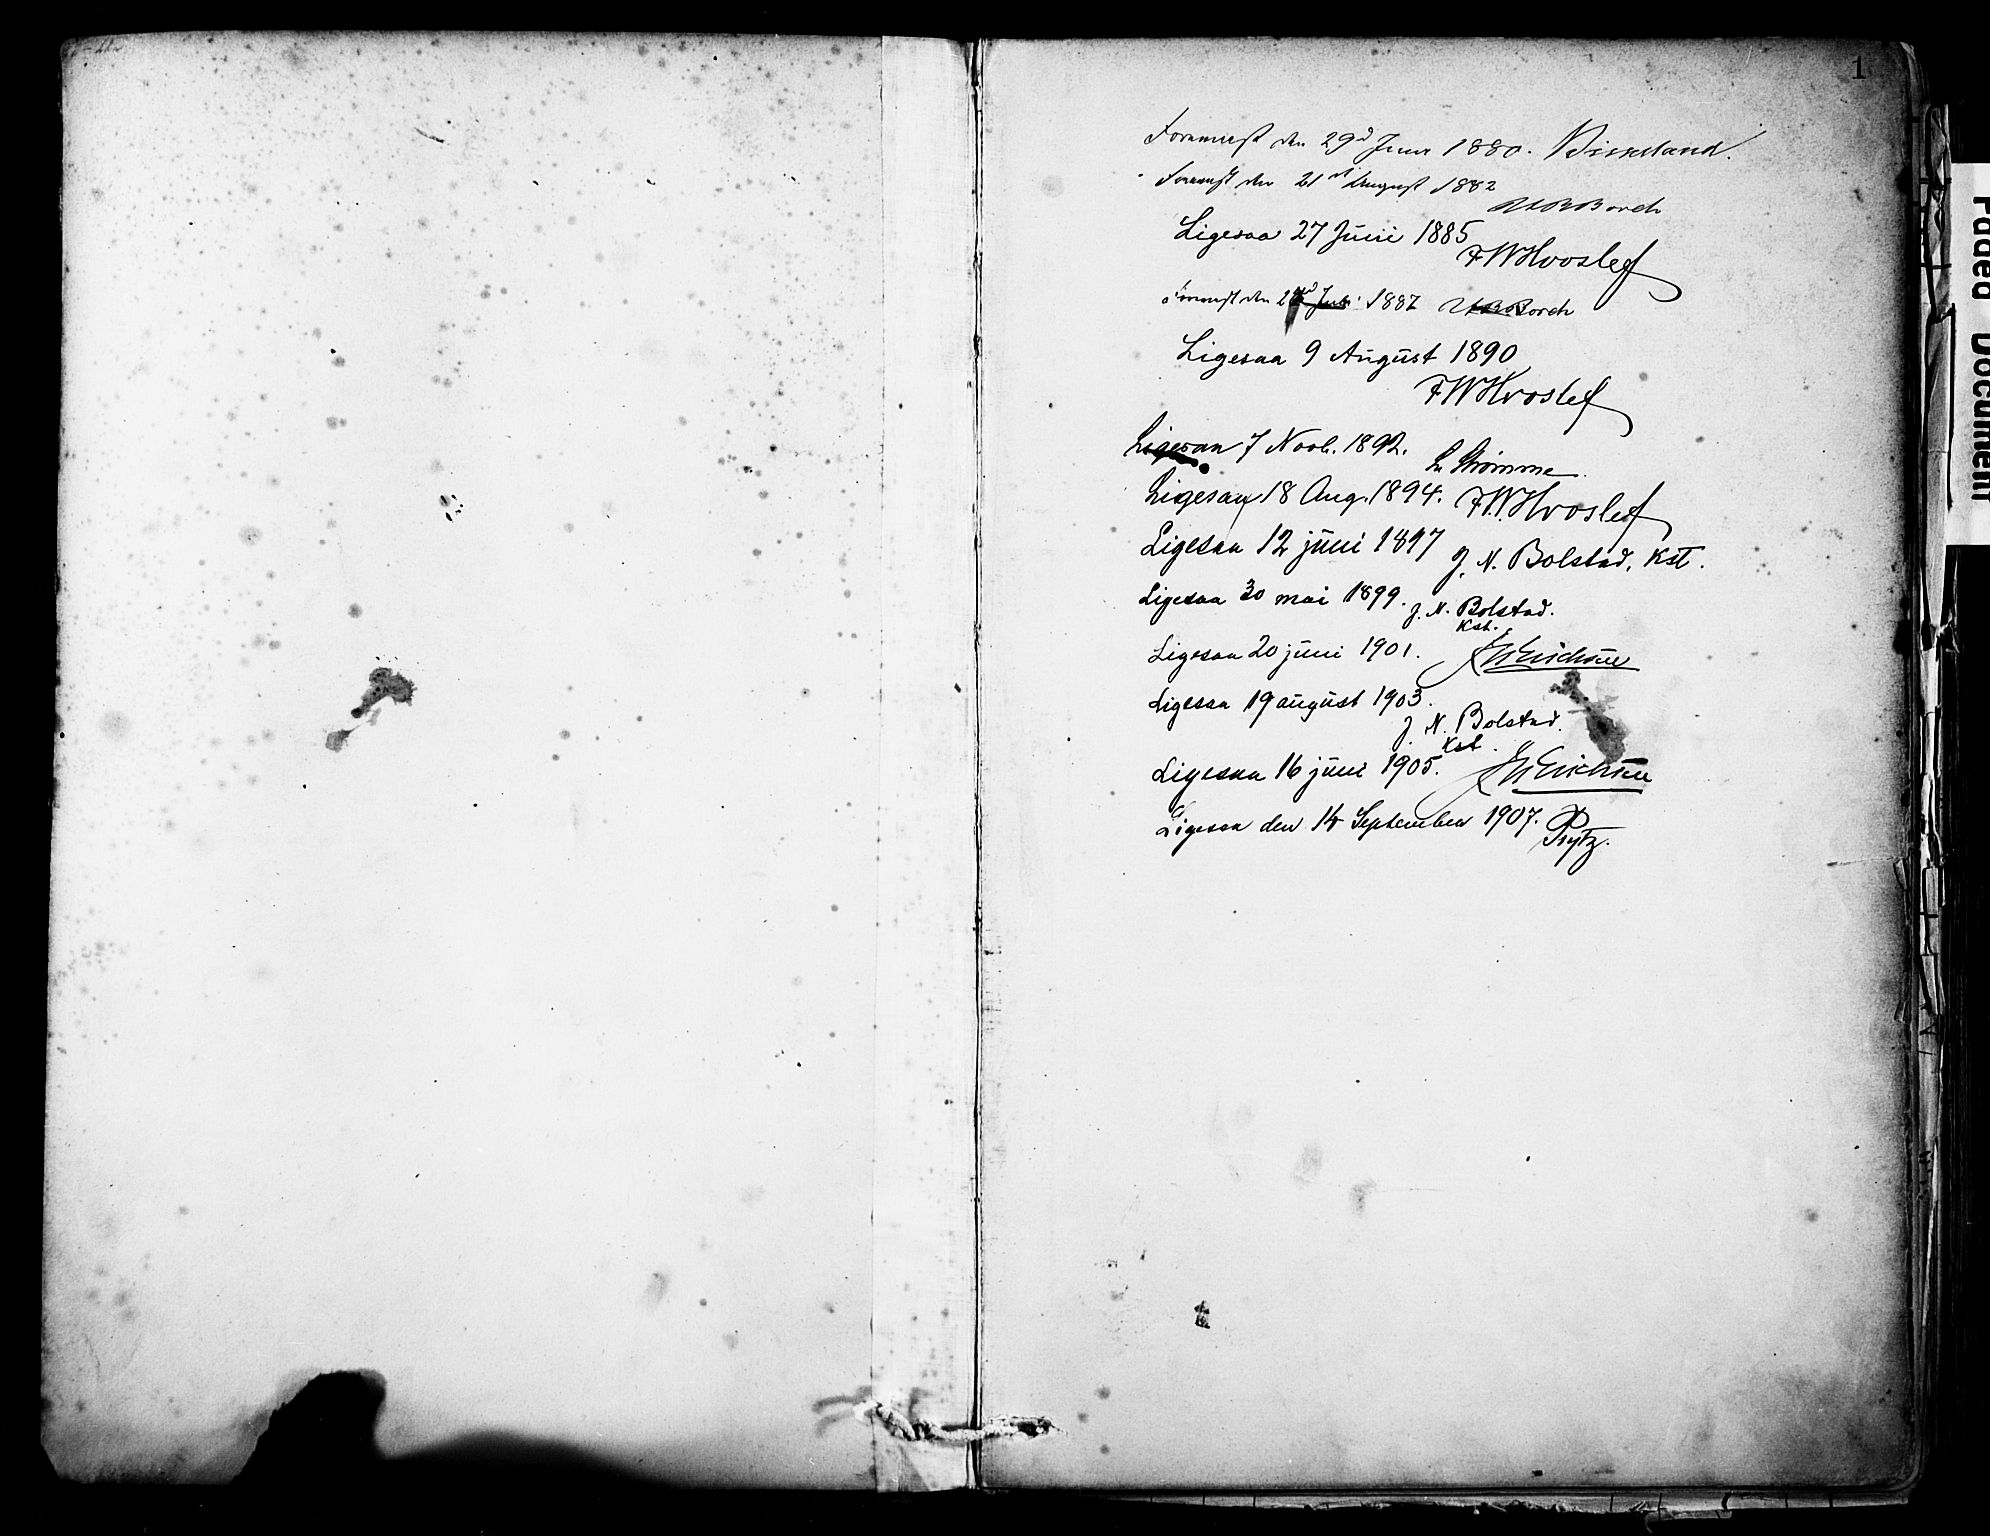 1
Foreviist den 29d Juni 1880.
den 21st August 1882
Borch
Ligesaa 27 Juni 1885
FWHvoslef
den 1887 Borch
Ligesaa 9 August 1890
FWHvoslef
Ligesaa 7 Novb. 1892.
L. Strömme
Ligesaa 18 Aug. 1894. F.W.Hvoslef
Ligesaa 12 juni 1897
J. N. Bolstad, Kst.
Ligesaa 30 mai 1899. J. N. Bolstad.
Kst.
Ligesaa 20 juni 1901.
Ligesaa 19 august 1903.
J. N. Bolstad.
Kst.
Ligesaa 16 juni 1905.
Ligesaa den 14 September 1907. Prytz.
Faded Document